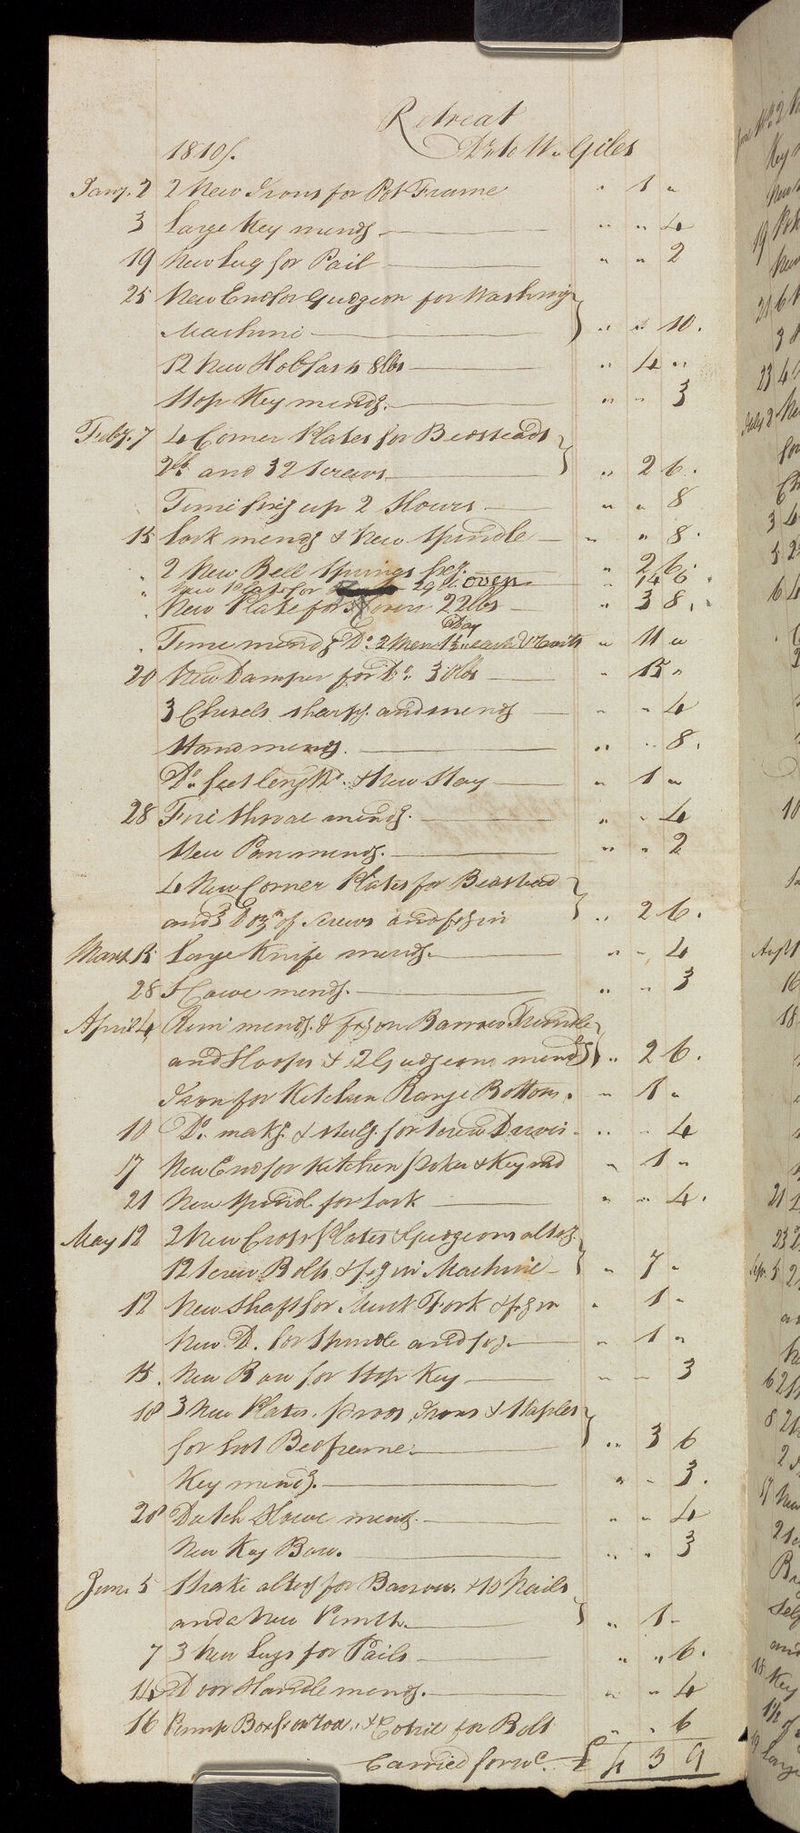 Retreat
1810/. Dr to Wm Giles
Jany. 2 2 New Irons for Pot Frame " 1 "
3 Large Key mendg. " " 4
19 New Lug for Pail " " 2
25 New End for Gudgeon for Washing
Machine " " 10.
12 New Holdfasts 8lbs " 4 "
Stop Key mendg. " " 3
Feby. 7 4 Corner Plates for Bedsteads
and 32 Screws " 2 6.
Time fixg up 2 Hours " " 8
15 Lock mendg & New Spindle " " 8.
2 New Bell Springs fixg. " 2 6.
New Plate for oven " 14 6
New Plate for oven 22lbs " 3 8.
Time mendg Do. 2 Men Day each " 11 "
20 New Damper for Do. 30lbs " 15 "
3 Chisels sharpg. and mendg " " 4
Stand mendg. " " 8.
Do. feet lengthd. & New Stay " 1 "
28 Fire Shovel mendg. " " 4
New Pan mendg. " " 2
4 New Corner Plates for Bedstead
and 3 Dozn. of Screws and fixg in " 2 6.
March 15 Large Knife mendg. " " 4
28 Howe mendg. " " 3
April 4 Rim mendg. & fixg on Barrow Trundle
and Hoops & 2 Gudgeons mendg " 2 6.
Iron for Kitchen Range Bottom. " 1 "
10 Do. makg. & Steelg. for Screw Driver " " 4
17 New End for Kitchen Poker & Key md " 1 "
21 New Spindle for Lock " " 4.
May 12 2 New Cross Plates & Gudgeons altdg
12 Screw Bolts & fixg in Machine " 7 "
12 New Shaft for Muck Fork & fixg in " 1 "
New Do. for Spindle and fixg. " 1 "
15. New Bow for Stop Key " " 3
18 3 New Plates, Irons & Staples
for Bedframe. " 3 6
Key mendg. " " 3.
28 Dutch Howe mendg. " " 4
New Key Bow. " " 3
June 5 Strake altdg for Barrow. & 10 Nails
and a New " 1 "
7 3 New Lugs for Pails " " 6.
14 Door Handle mendg. " " 4
16 Pump Box & Cotrill for Bolt " " 6
Carried forwd. £ 4 3 9